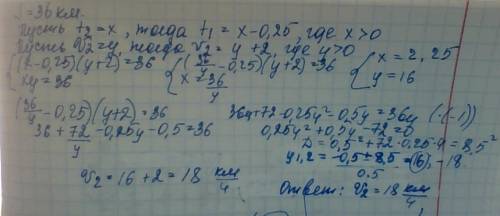 S=36 км.
пусть t₂=x, тогда t₁ = x-0,25, где x>0
Пусть V₂=y, тогда V₂ = y+2, где y>0
{(x-0,25)(y+2)=36 {(36/y -0,25)(y+2)=36 {x=2,25
xy=36 x=36/y y=16
(36/y -0,25)(y+2)=36 36y+72-0,25y²-0,5y=36y (·(-1))
36+72/y-0,25y-0,5=36 0,25y²+0,5y-72=0
D=0,5²+72·0,25·4=8,5²
y₁,₂= (-0,5±8,5)/0.5 = 16, -18
V₂=16+2=18 км/ч Ответ: V₂=18 км/ч